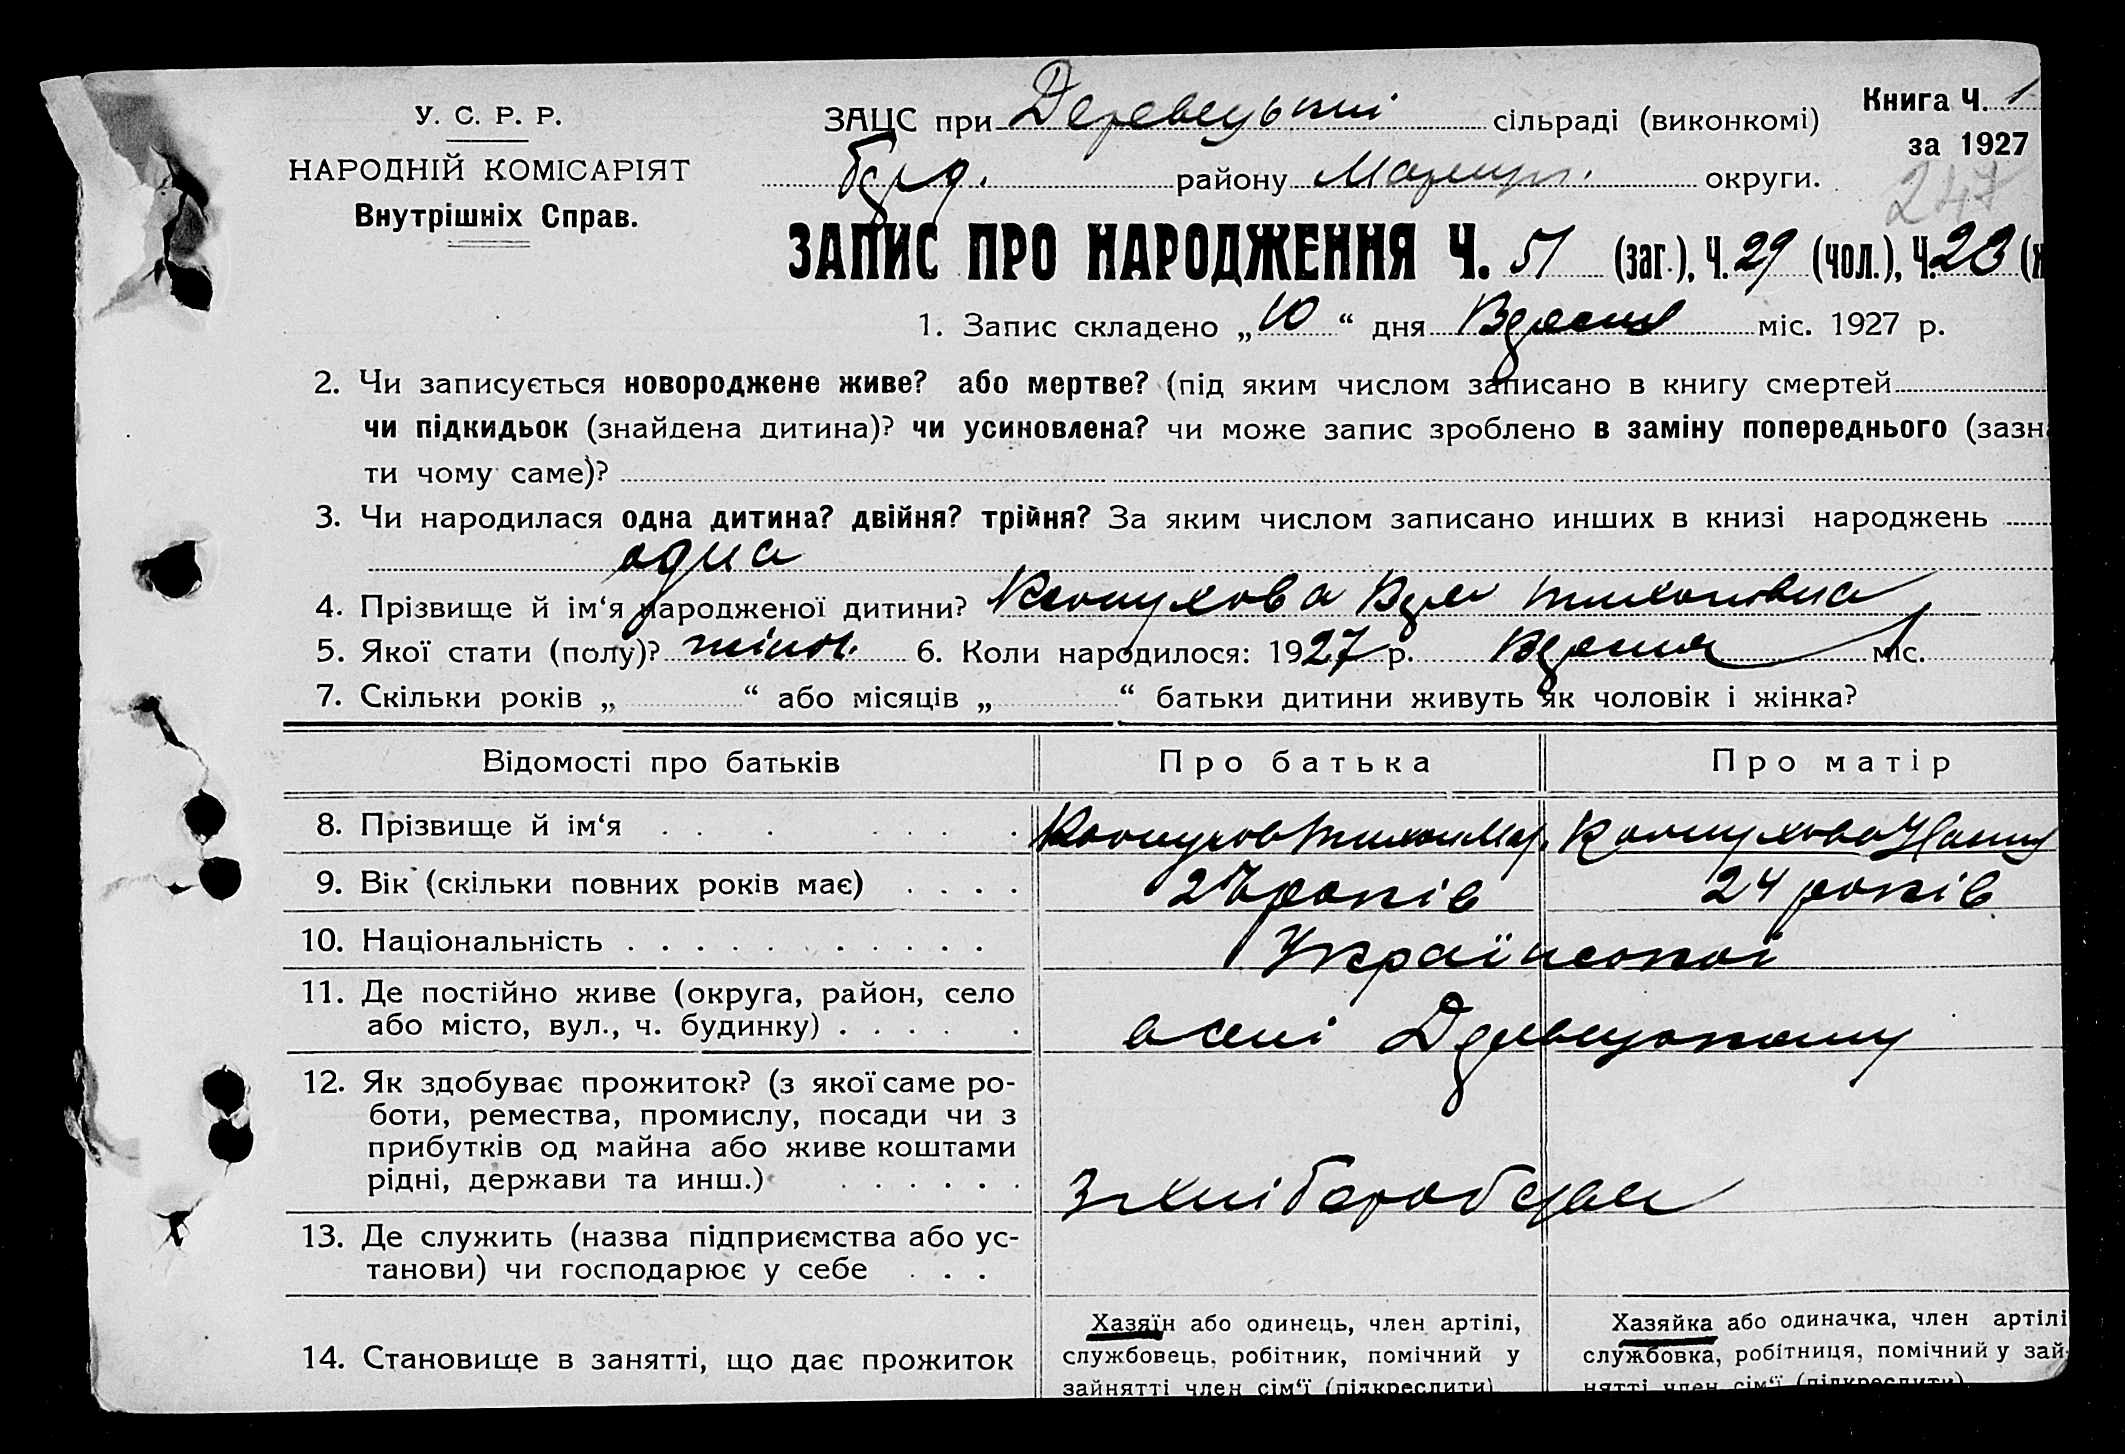 У. С. Р. Р.
НАРОДНІЙ КОМІСАРІЯТ
Внутрішніх Справ.
ЗАЦС при сільраді (виконкомі)
Книга Ч. 1
за 1927
району Мариуп. округи.
247
ЗАПИС ПРО НАРОДЖЕННЯ Ч. 51 (заг.), Ч. 29 (чол.), Ч. 23 (ж
1. Запис складено „10“ дня Вересня міс. 1927 р.
2. Чи записується новороджене живе? або мертве? (під яким числом записано в книгу смертей
чи підкидьок (знайдена дитина)? чи усиновлена? чи може запис зроблено в заміну попереднього (зазна
ти чому саме)?
3. Чи народилася одна дитина? двійня? трійня? За яким числом записано инших в книзі народжень
одна
4. Прізвище й ім‘я народженої дитини? Вера Тихоновна
5. Якої стати (полу)? жіноч. 6. Коли народилося: 1927 р. Вересня міс.
7. Скільки років „ “ або місяців „ “ батьки дитини живуть як чоловік і жінка?
Відомості про батьків Про батька Про матір
8. Прізвище й ім‘я
9. Вік (скільки повних років має) років 24 років
10. Національність Української
11. Де постійно живе (округа, район, село
або місто, вул., ч. будинку) в селі
12. Як здобуває прожиток? (з якої саме ро-
боти, ремества, промислу, посади чи з
прибутків од майна або живе коштами
рідні, держави та инш.) хліборобства
13. Де служить (назва підприємства або ус-
танови) чи господарює у себе
14. Становище в занятті, що дає прожиток
Хазяїн або одинець, член артілі,
службовець, робітник, помічний у
зайнятті член сім‘ї (підкреслити)
Хазяйка або одиначка, член артілі
службовка, робітниця, помічний у зай-
нятті член сім‘ї (підкреслити)